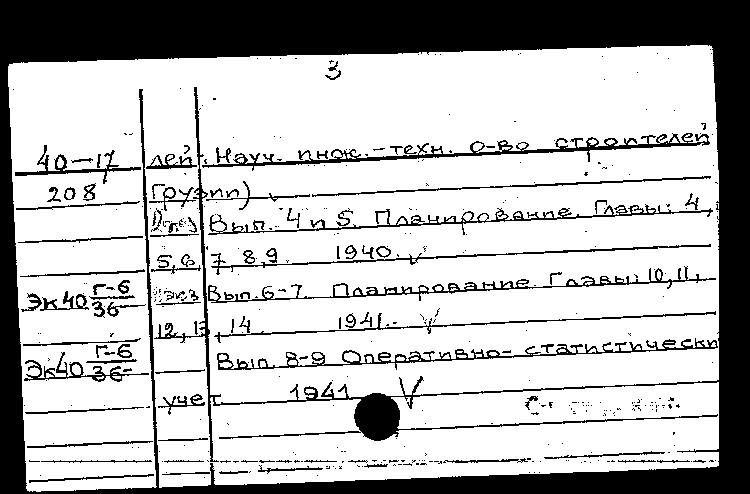 3
40-17 лей. Науч. инж.-техн. о-во строителей
208 Грузии)
Вып. 4 и 5. Планирование. Главы: 4,
5, 6, 7, 8, 9. 1940.
Эк40 Г-6/36 Вып. 6-7. Планирование. Главы: 10, 11,
12, 13, 14. 1941.-
Эк40 Г-6/36 Вып. 8-9 Оперативно-статистически
учет 1941